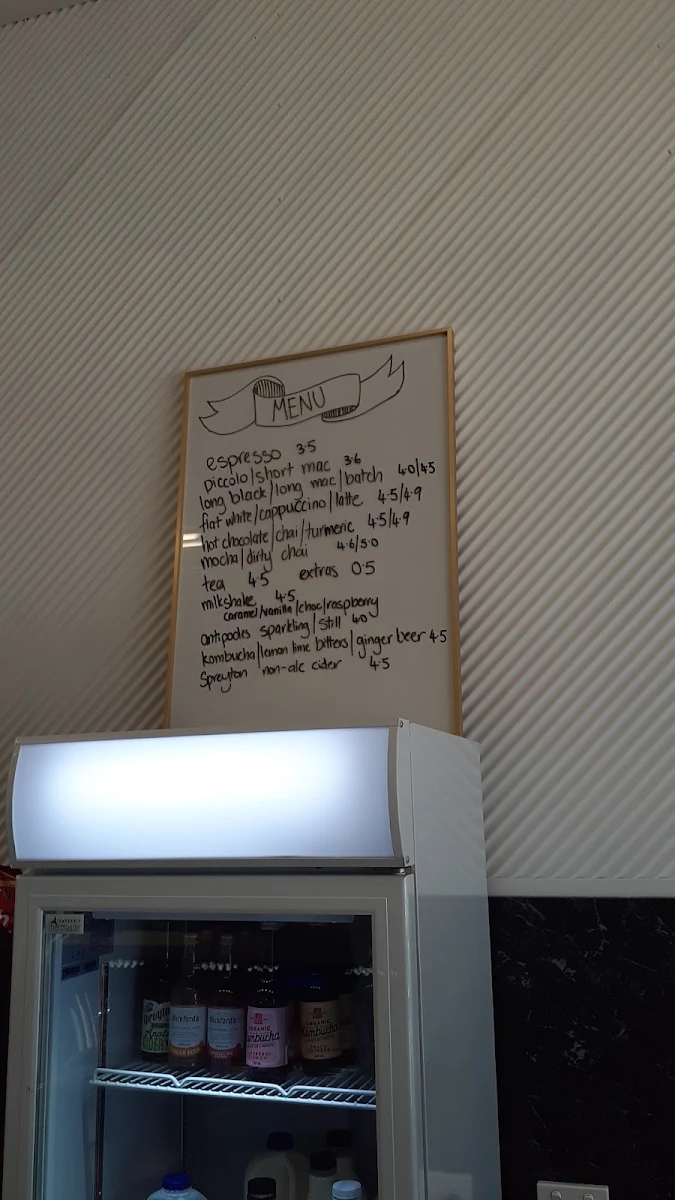 MENU
espresso 3.5
piccolo/short mac 3.6
long black/long mac/batch 4.0/4.5
flat white/cappuccino/latte 4.5/4.9
hot chocolate/chai/turmeric 4.5/4.9
mocha/dirty chai 4.6/5.0
tea 4.5 extras 0.5
milkshake 4.5
caramel/vanilla/choc/raspberry
antipodes sparkling/still 4.0
kombucha/lemon lime bitters/ginger beer 4.5
Spreyton non-alc cider 4.5
Bickford's
Bickford's
ORGANIC
Kombucha
ORGANIC
Kombucha